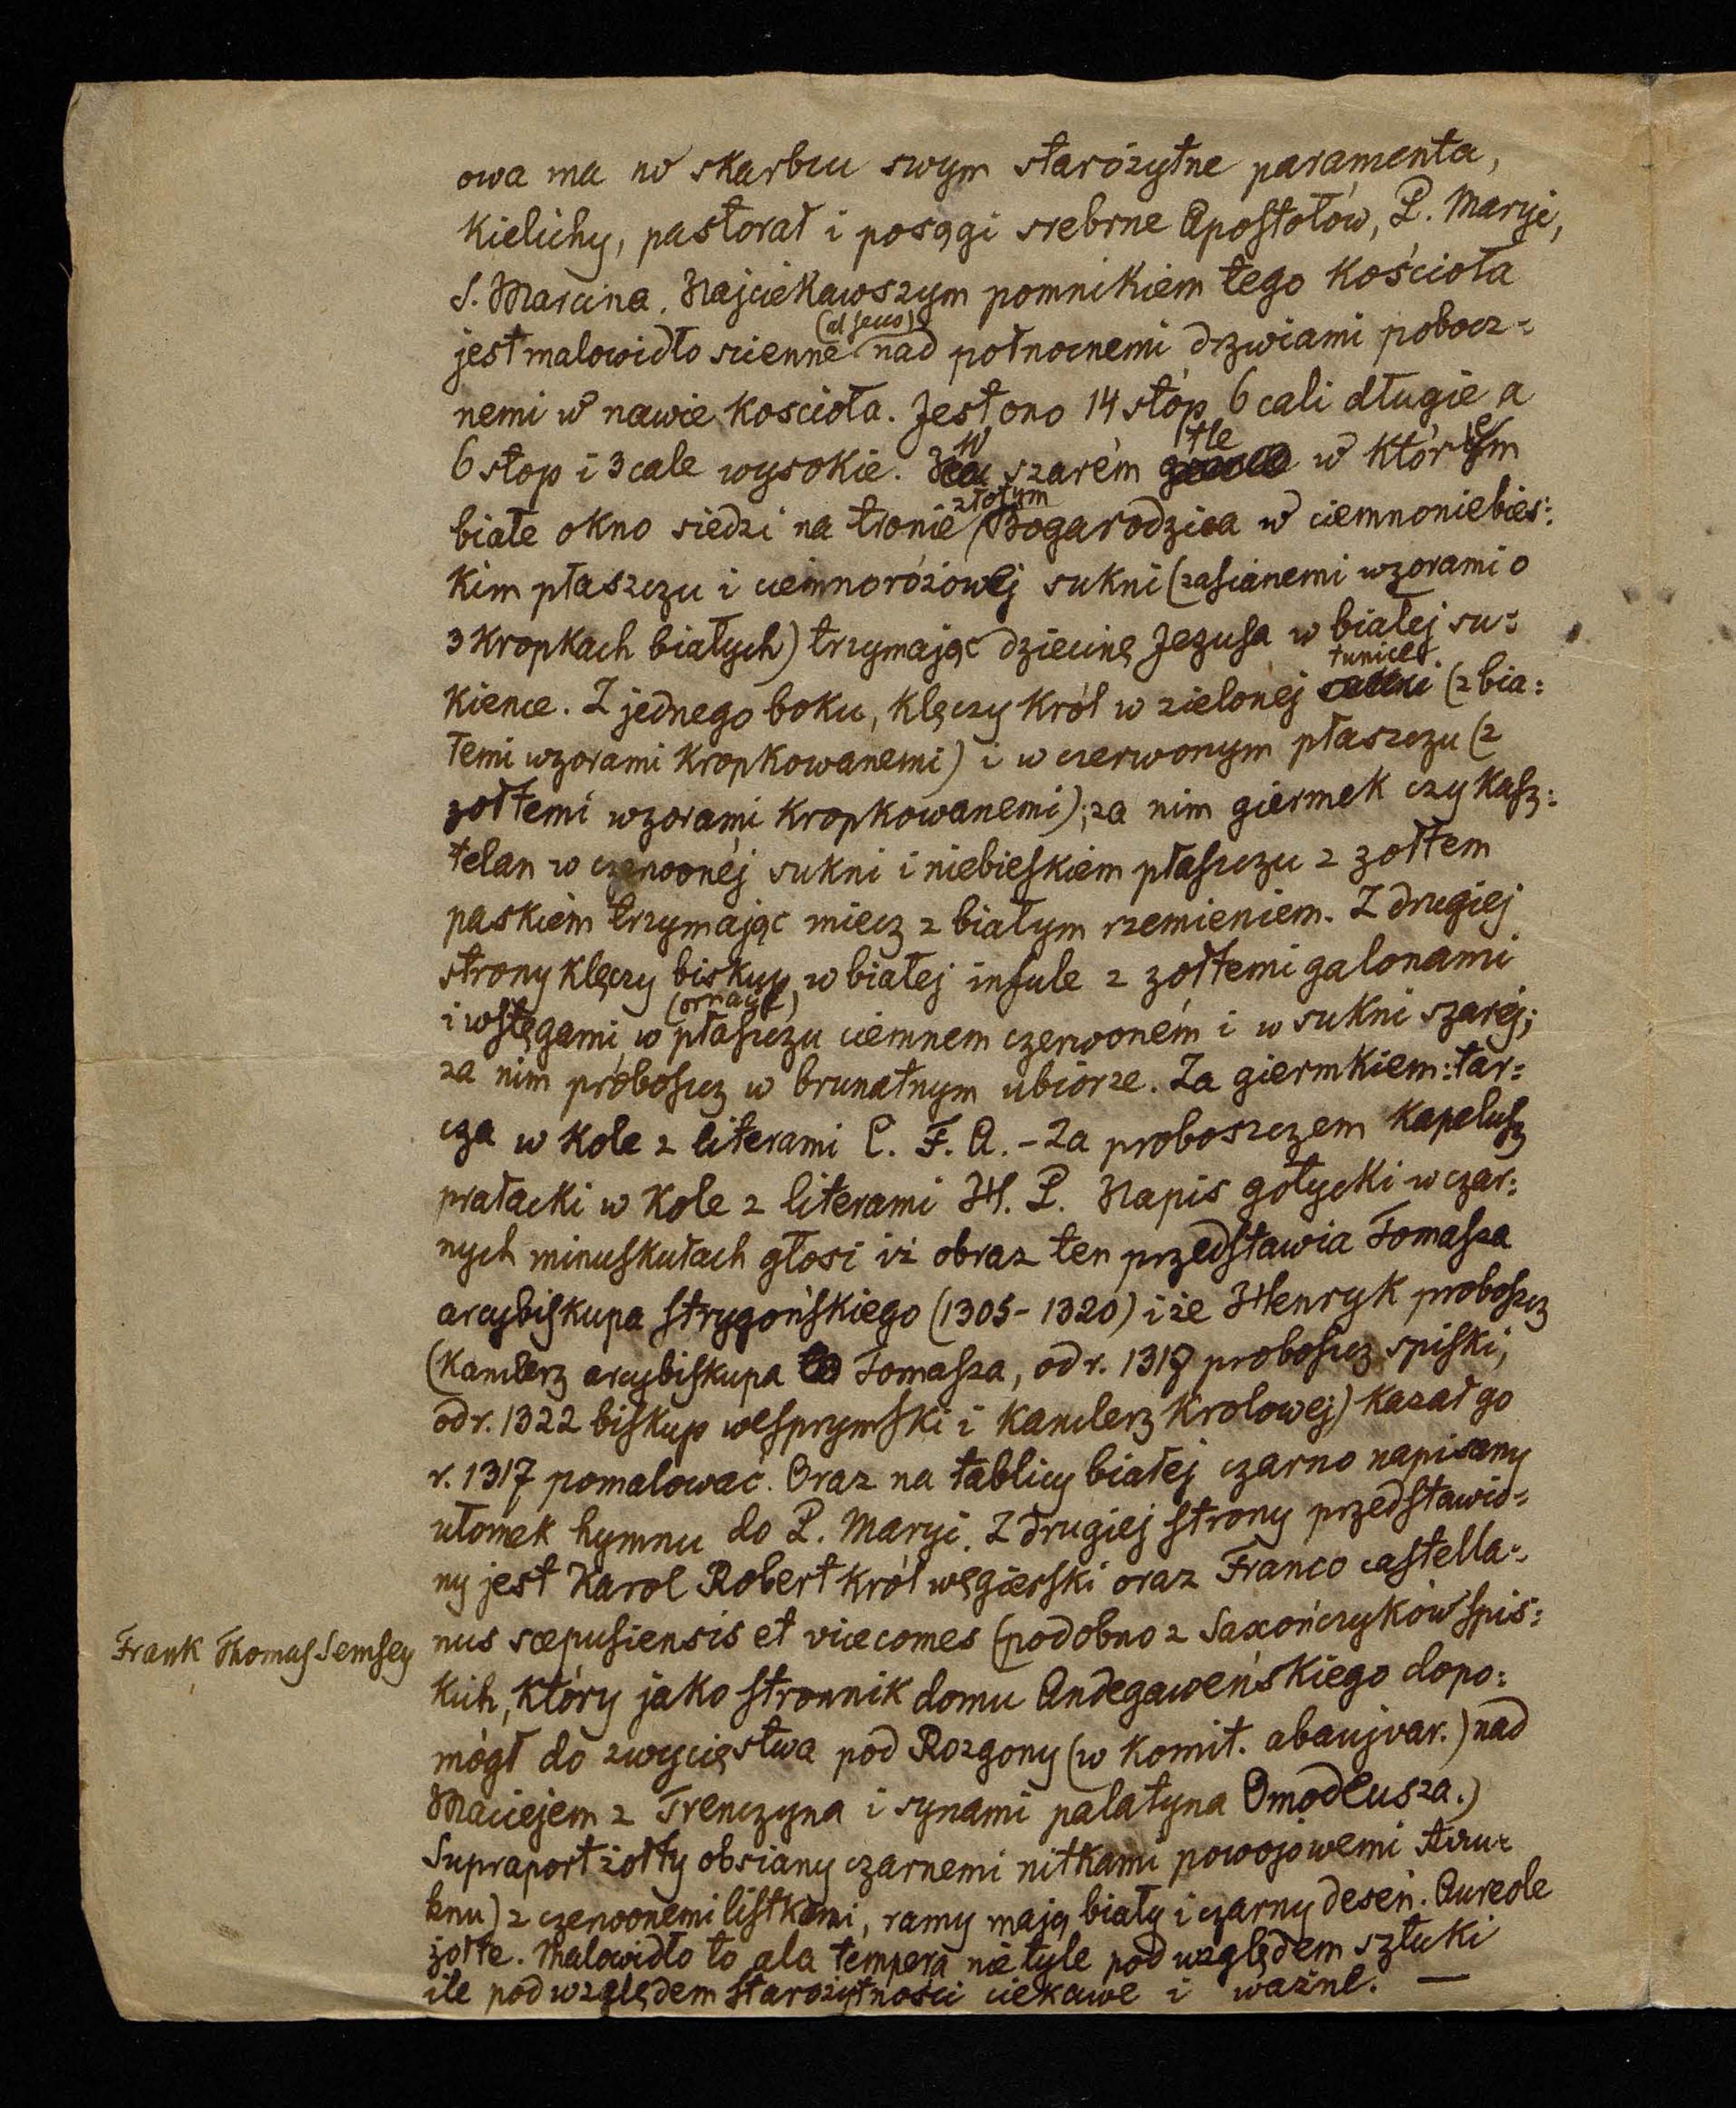 owa ma w skarbcu swym starożytne paramenta,
Kielichy, pastorał i posągi srebrne Apostołów, P. Maryi,
S. Marcina. Najciekawszym pomnikiem tego Kościoła
jest malowidło scienne (al secco) nad połnocnemi drzwiami pobocz=
nemi w nawie Kościoła. Jest ono 14 stóp 6 cali długie a
6 stop i 3 cale wysokie. W szarém tle w którem
białe okno siedzi na tronie złotym Bogarodzica w ciemnoniebies=
kim płaszczu i ciemnoróżowej sukni (zasianemi wzorami o
3 Kropkach białych) trzymając dziecinę Jezusa w białej su=
kience. Z jednego boku, Klęczy Król w zielonej tunice (z bia=
łemi wzorami Kropkowanemi) i w czerwonym płaszczu (z
żołtemi wzorami Kropkowanemi); za nim giermek czy Kasz=
telan w czerwonéj sukni i niebieskiem płaszczu z żołtem
paskiem trzymając miecz z białym rzemieniem. Z drugiej
strony klęczy biskup w białej infule z żołtemi galonami
i wstęgami, w płaszczu (ornayt) ciemnem czerwoném i w sukni szarej;
za nim proboszcz w brunatnym ubiorze. Za giermkiem: tar=
cza w Kole z literami C. F. A. - Za proboszczem Kapelusz
prałacki w Kole z literami H. P. Napis gotycki w czar=
nych minuskułach głosi iż obraz ten przedstawia Tomasza
arcybiskupa strygońskiego (1305 - 1320) i że Henryk proboszcz
(Kanclerz arcybiskupa Tomasza, od r. 1317 proboszcz spiski,
od r. 1322 biskup wesprymski i Kanclerz Krolowej) Kazał go
r. 1317 pomalować. Oraz na tablicy białej czarno napisany
ułomek hymnu do P. Maryi. Z drugiej strony przedstawio=
ny jest Karol Robert Król węgierski oraz Franco castella=
Frank Thomas Semsey
nus scepusiensis et vicecomes (podobno z Saxończyków spis=
kich, Który jako stronnik domu Andegaweńskiego dopo=
mógł do zwycięstwa pod Rozgony (w Komit. abaujvar.) nad
Maciejem z Trenczyna i synami palatyna Omodeusza.)
Supraport żołty obsiany czarnemi nitkami powojowemi
z czerwonemi listkami, ramy mają biały i czarny deseń. Aureole
żołte. Malowidło to ala tempera nie tyle pod względem sztuki
ile pod względem starożytności ciekawe i ważne. —